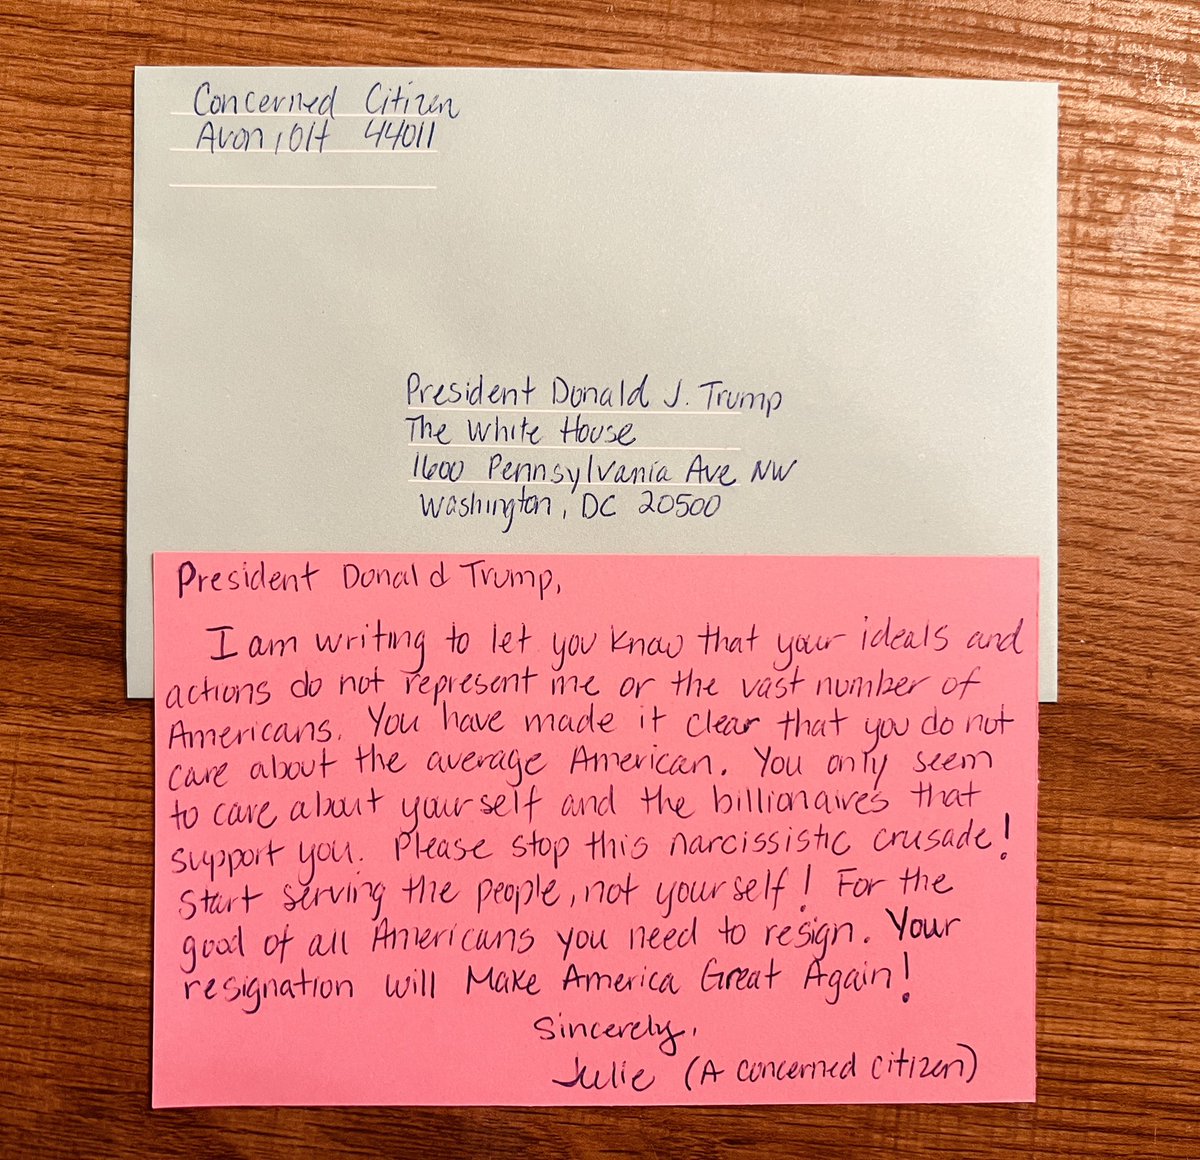 Concerned Citizen
Avon, OH 44011
President Donald J. Trump
The White House
1600 Pennsylvania Ave NW
Washington, DC 20500
President Donald Trump,
I am writing to let you know that your ideals and
actions do not represent me or the vast number of
Americans. You have made it clear that you do not
care about the average American. You only seem
to care about yourself and the billionaires that
support you. Please stop this narcissistic crusade!
Start serving the people, not yourself! For the
good of all Americans you need to resign. Your
resignation will Make America Great Again!
Sincerely,
Julie (A concerned citizen)